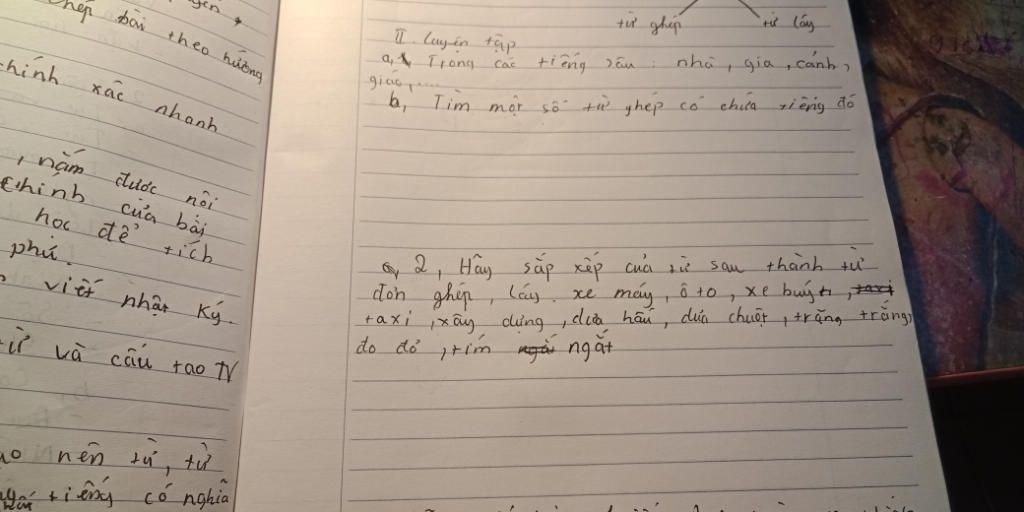 chép bài theo hướng
chính xác nhanh
, nắm được nôi
chính của bài
học để tích
phú.
viết nhât ký.
từ và cấu tao TV
nên từ, từ
tiếng có nghĩa
từ ghép từ láy
II. Luyện tập
a, Trong các tiếng sau: nhà, gia, cánh,
giác,...
b, Tìm một số từ ghép có chứa tiếng đó
2, Hãy sắp xếp của từ sau thành từ
đơn ghép, láy. xe máy, ô to, xe buýt,
taxi, xây dựng, dưa hấu, dưa chuột, trăng trắng,
đo đỏ, tím ngắt